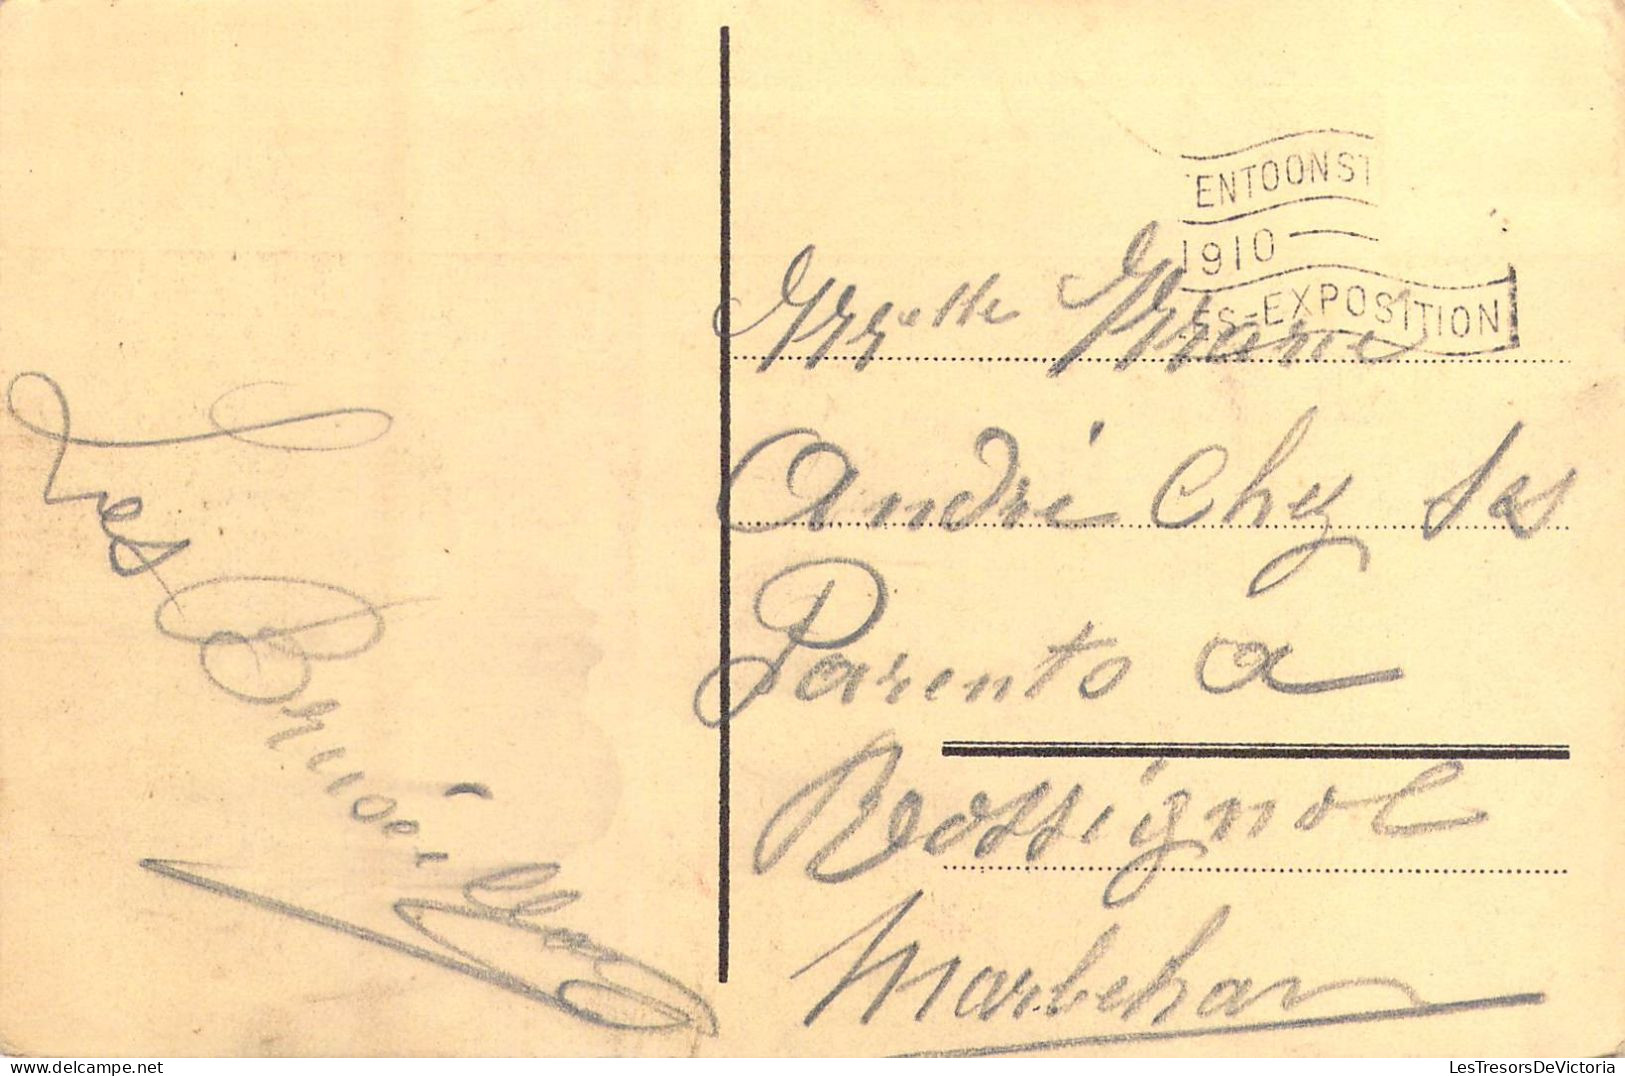 ENTOONST
1910
ES-EXPOSITION
Melle Marie
André Chez Ses
Parents a
Rossignol
Marbehan
Les
LesTresorsDeVictoria